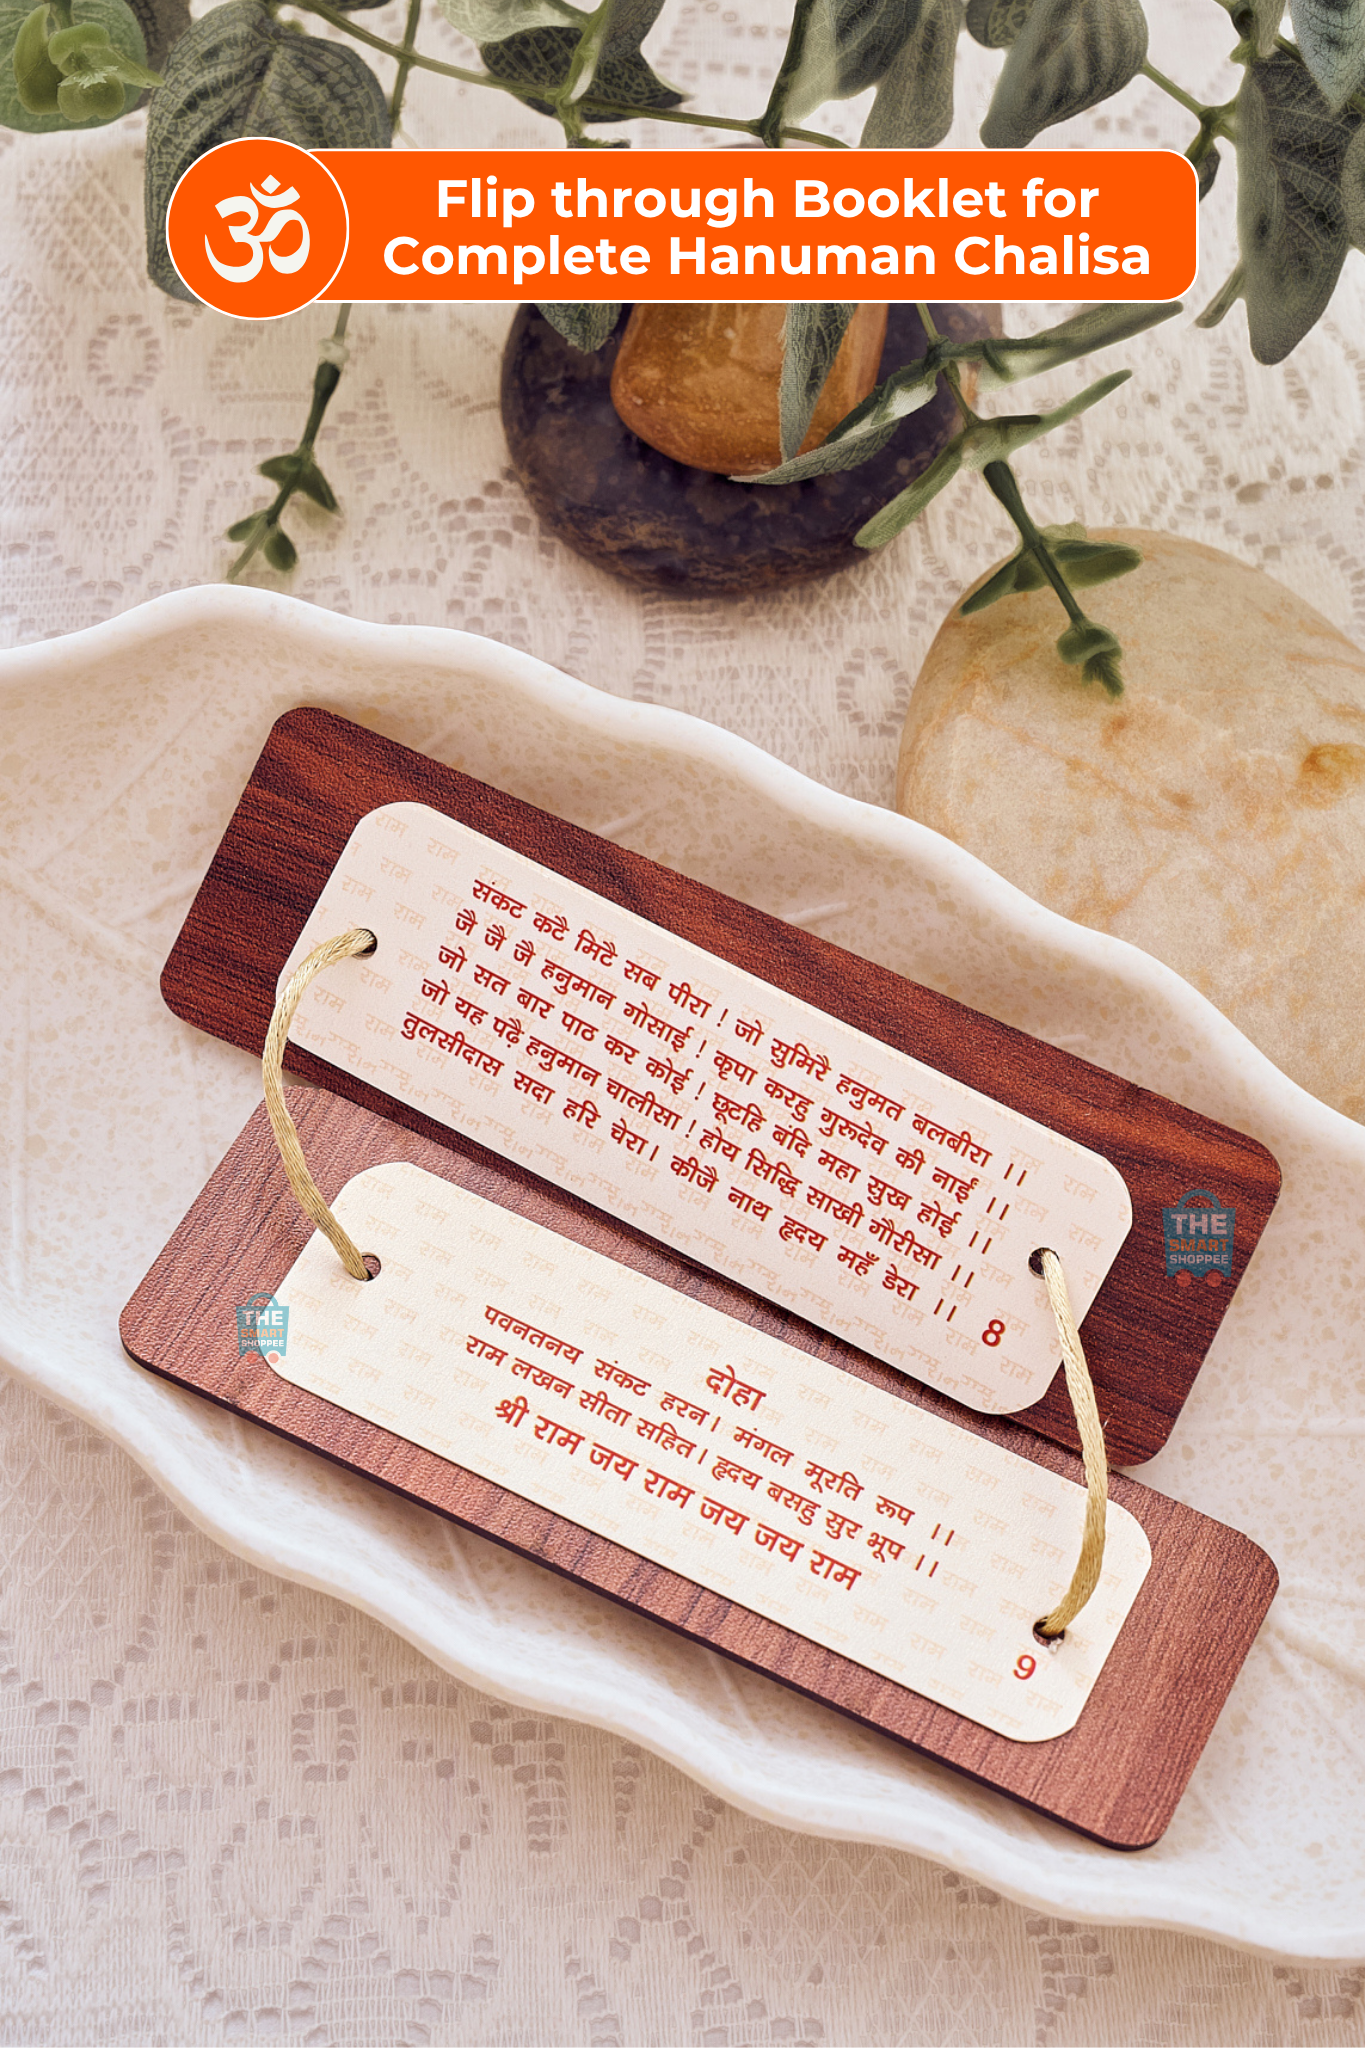 ॐ
Flip through Booklet for
Complete Hanuman Chalisa
संकट कटै मिटै सब पीरा ! जो सुमिरै हनुमत बलबीरा ।।
जै जै जै हनुमान गोसाई ! कृपा करहु गुरुदेव की नाईं ।।
जो सत बार पाठ कर कोई ! छूटहि बंदि महा सुख होई ।।
जो यह पढ़ै हनुमान चालीसा ! होय सिद्धि साखी गौरीसा ।।
तुलसीदास सदा हरि चेरा। कीजै नाथ हृदय महँ डेरा ।।
8
THE
SMART
SHOPPEE
THE
SMART
SHOPPEE
दोहा
पवनतनय संकट हरन। मंगल मूरति रूप ।।
राम लखन सीता सहित। हृदय बसहु सुर भूप ।।
श्री राम जय राम जय जय राम
9